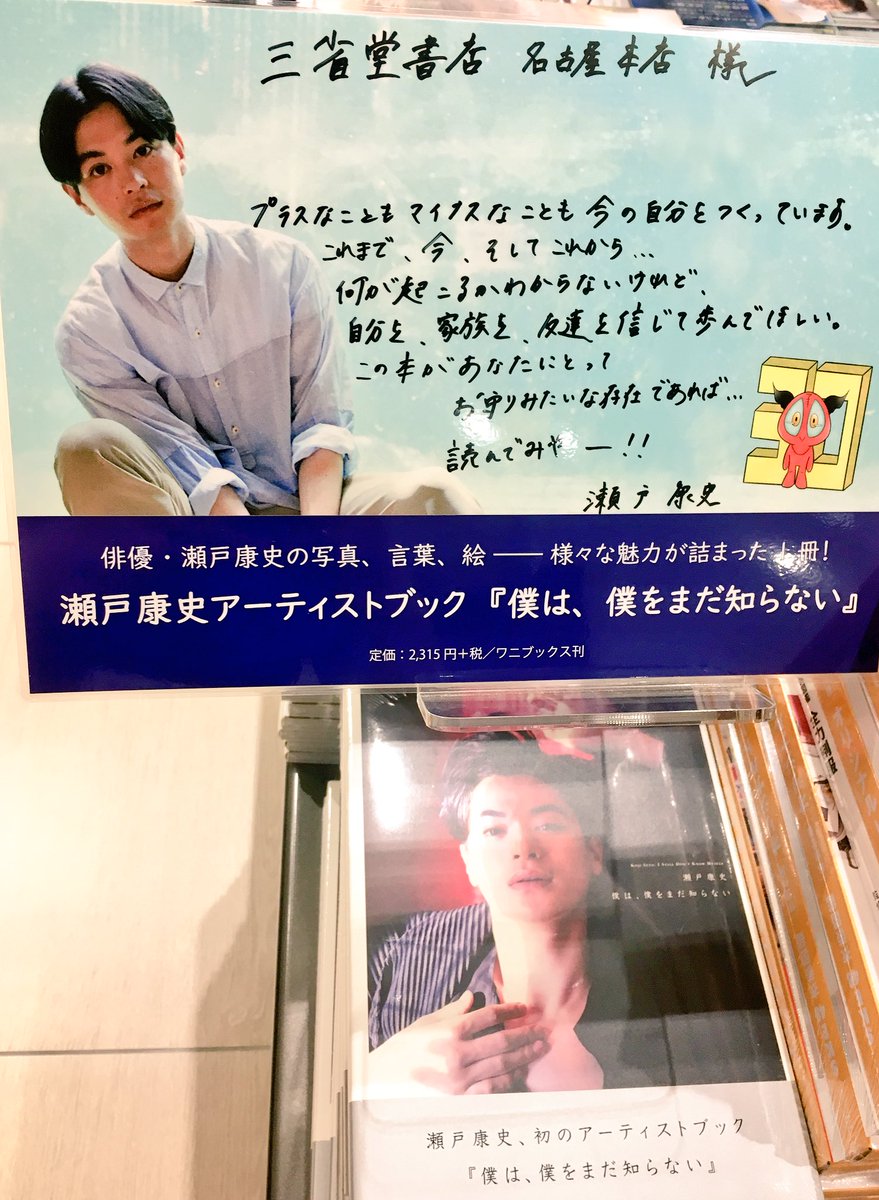 三省堂書店 名古屋本店 様
プラスなことも マイナスなことも 今の自分をつくっています。
これまで、今、そしてこれから…
何が起こるかわからないけれど、
自分を、家族を、友達を信じて歩んでほしい。
この本があなたにとって
お守りみたいな存在であれば…
読んでみやー!!
瀬戸康史
俳優・瀬戸康史の写真、言葉、絵――様々な魅力が詰まった1冊!
瀬戸康史アーティストブック『僕は、僕をまだ知らない』
定価:2,315円+税/ワニブックス刊
Koji Seto: I Still Don't Know Myself
瀬戸康史
僕は、僕をまだ知らない
瀬戸康史、初のアーティストブック
『僕は、僕をまだ知らない』